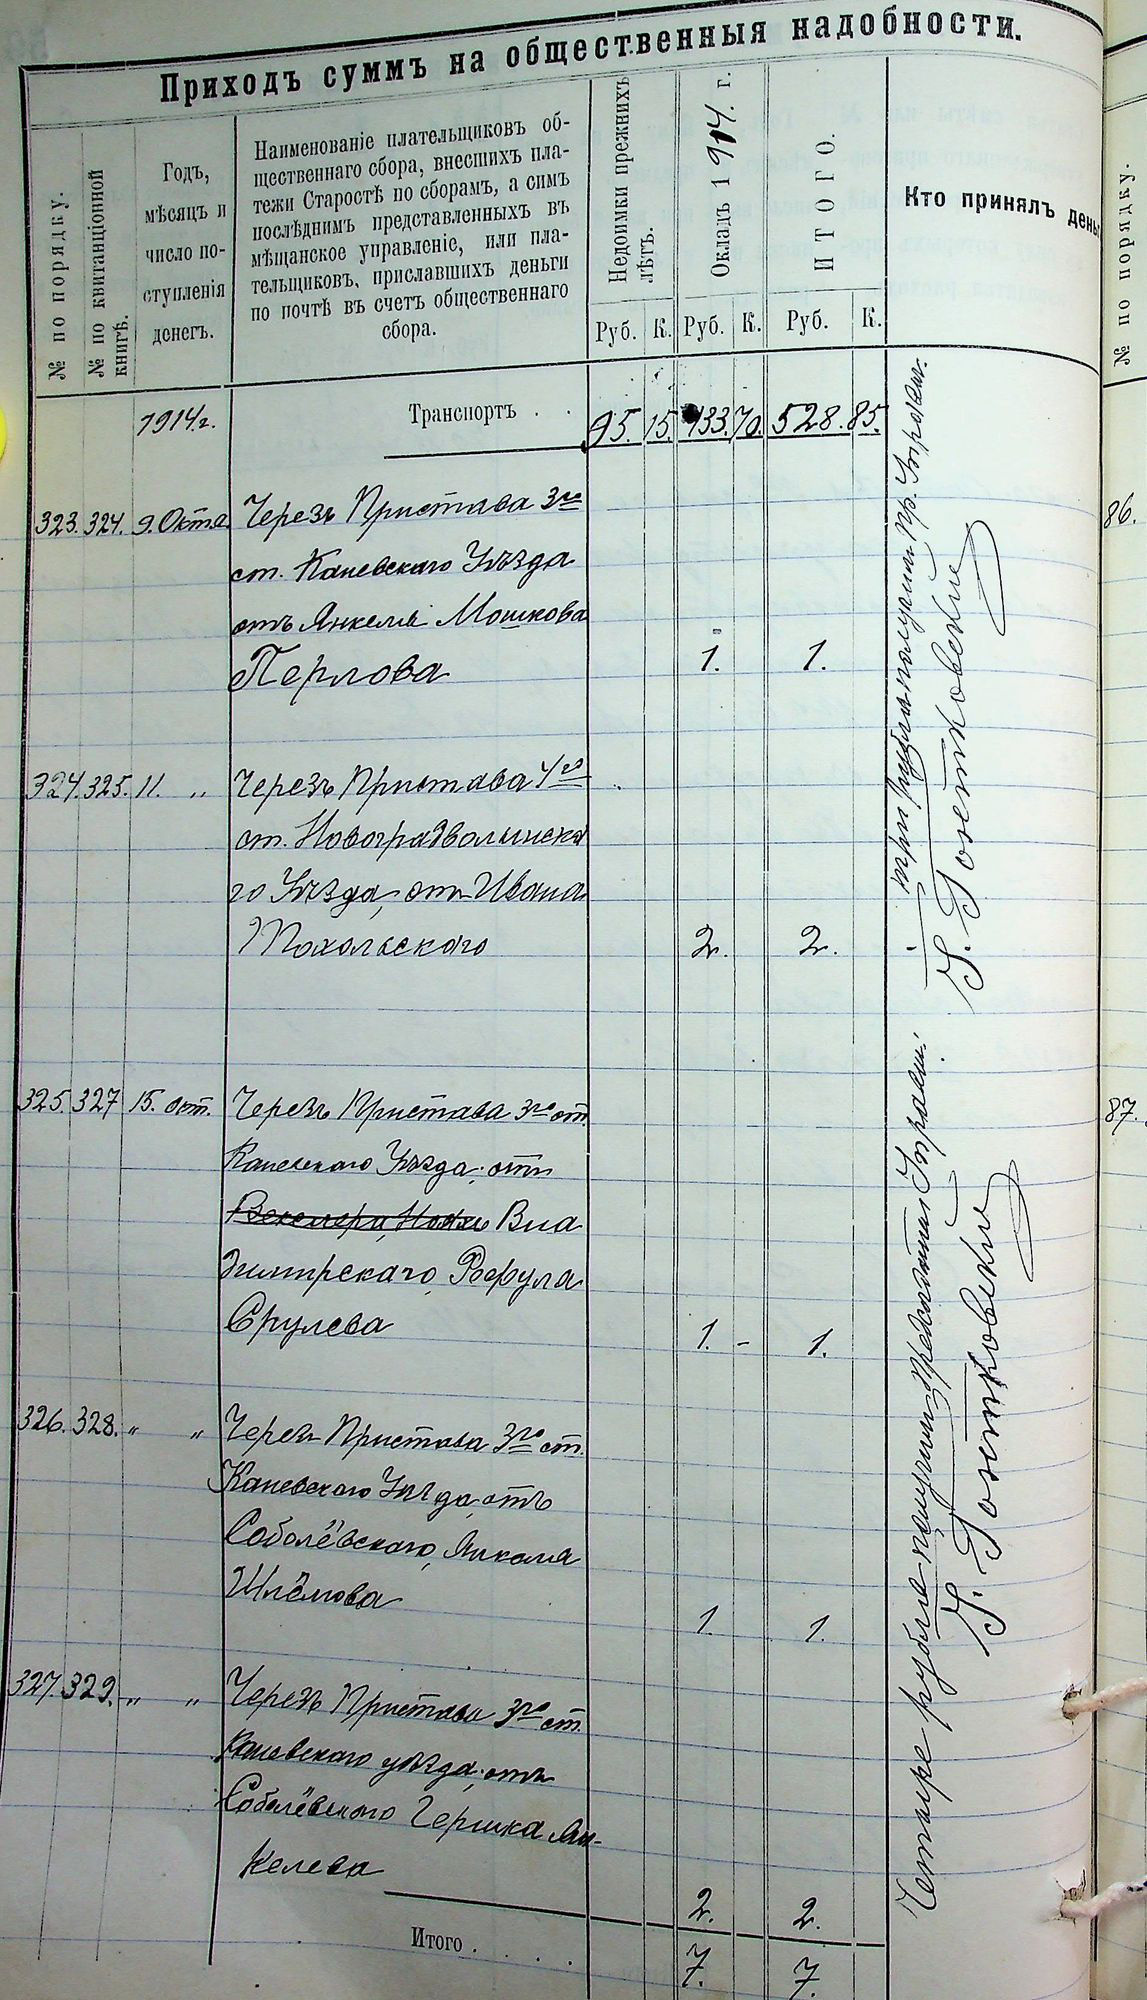 Приходъ суммъ на общественныя надобности.
№ по порядку.
№ по квитанціонной книгѣ.
Годъ,
мѣсяцъ и
число по-
ступленія
денегъ.
Наименованіе плательщиковъ об-
щественнаго сбора, внесшихъ пла-
тежи Старостѣ по сборамъ, а симъ
послѣднимъ представленныхъ въ
мѣщанское управленіе, или пла-
тельщиковъ, приславшихъ деньги
по почтѣ въ счетъ общественнаго
сбора.
Недоимки прежнихъ лѣтъ.
Окладъ 1914. г.
ИТОГО.
Кто принялъ день
Руб. К. Руб. К. Руб. К.
1914 г. Транспортъ . . 95. 15. 433. 70. 528. 85.
323. 324. 9. Окт. Черезъ Пристава 3го
ст. Каневскаго Уѣзда
отъ Янкеля Мошкова
Перлова 1. 1.
324. 325. 11. „ Черезъ Пристава 4го
ст. Новоградволынска
го Уѣзда, отъ Ивана
Тохольскаго 2. 2.
325. 327 15. окт. Черезъ Пристава 3го ст.
Каневскаго Уѣзда, отъ
Вла
димирскаго,
Срулева 1. - 1.
326. 328. „ „ Черезъ Пристава 3го ст.
Каневскаго Уѣзда, отъ
Соболёвскаго, Янкеля
Шлёмова 1. 1.
327. 329. „ „ Черезъ Пристава 3го ст.
Каневскаго уѣзда, отъ
Соболёвского Гершка Ян-
келева 2. 2.
Итого . . . . 7. 7.
три рубля получилъ Пр. Управ.
Четыре рубля получилъ Предсѣдатель Управы.
№ по порядку.
86.
87.